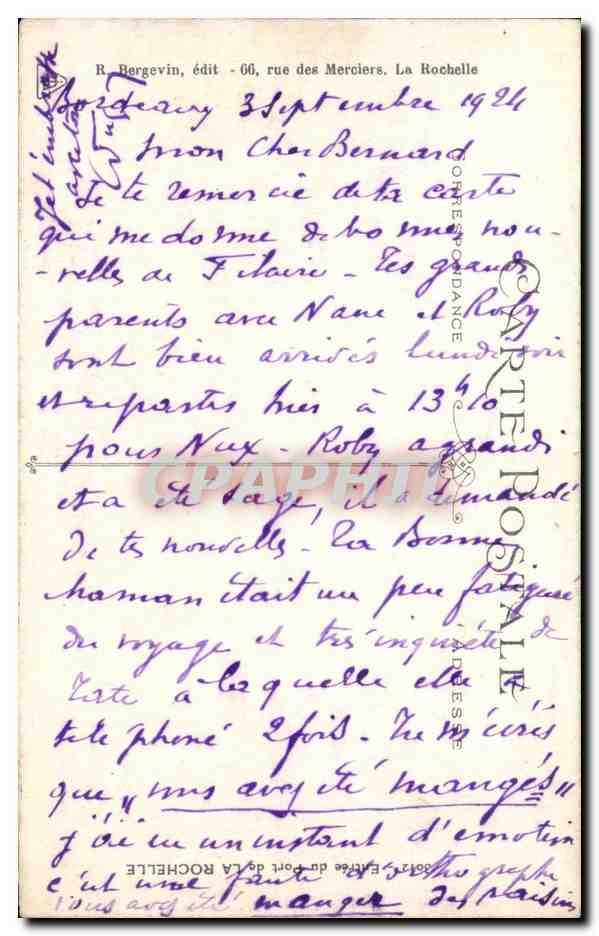 R. Bergevin, édit - 66, rue des Merciers. La Rochelle
Bordeaux 3 Septembre 1924
Mon Cher Bernard
Je te remercie de ta carte
qui me donne de bonnes nou-
-velles de F - Tes grands
parents avec Nane et Roby
sont bien arrivés lundi soir
et repartis hier à 13h10
pour - Roby a grandi
et a été sage, il a demandé
de tes nouvelles - Ta Bonne
Maman était un peu fatiguée
du voyage et très inquiète de
à laquelle elle a
téléphoné 2 fois - Tu m'écris
que "vous avez été mangés"
j'ai eu un instant d'émotion
c'est une faute d'orthographe
vous avez été manger des raisins
Je t'embrasse
CORRESPONDANCE
CARTE POSTALE
ADRESSE
Entrée du Port de LA ROCHELLE
CPAPHIL